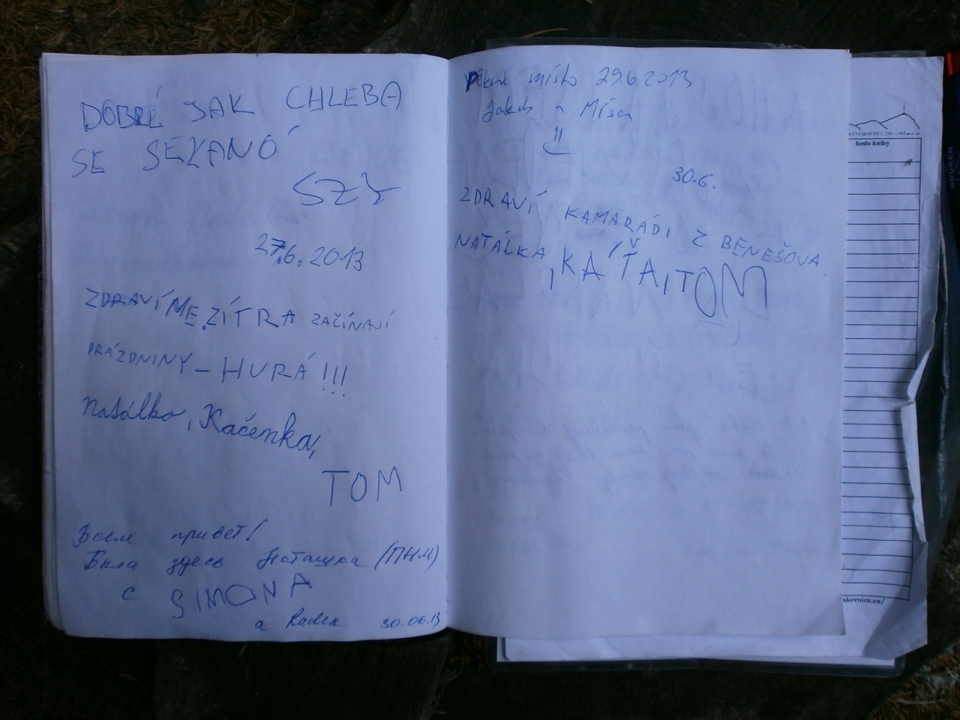 DOBRÉ JAK CHLEBA
SE SEKANÓ
SZY
27.6.2013
ZDRAVÍME, ZÍTRA ZAČÍNAJÍ
PRÁZDNINY – HURÁ!!!
Natálka, Kačenka,
TOM
Всем привет!
Была здесь Наташка (ПНМ)
с SIMONA
a Radek 30.06.13
Pěkné místo 29.6.2013
Jakub a Míša
30.6.
ZDRAVÍ KAMARÁDI Z BENEŠOVA
NATÁLKA, KÁŤA, TOM
heslo knihy